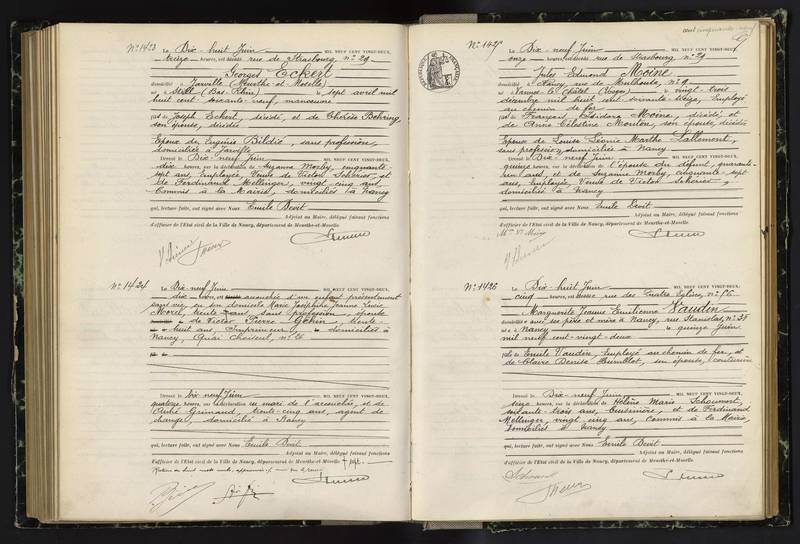 N° 1423
Le Dix-huit Juin MIL NEUF CENT VINGT-DEUX,
treize heures, est décédé rue de Strasbourg n° 29
Georges Eckert
domicilié à Jarville (Meurthe-et-Moselle)
né à Still (Bas-Rhin) le sept avril mil
huit cent soixante-neuf, manœuvre
fils de Joseph Eckert, décédé et de Thérèse Behring,
son épouse, décédée
Epoux de Eugénie Bildié, sans profession,
domiciliée à Jarville
Dressé le Dix-neuf Juin MIL NEUF CENT VINGT-DEUX,
dix heures, sur la déclaration de Suzanne Morby, cinquante-
sept ans, Employée, Veuve de Victor Schérier, et
de Ferdinand Mellinger, vingt cinq ans,
Commis à la Mairie, domiciliés à Nancy
qui, lecture faite, ont signé avec Nous Emile Devit
Adjoint au Maire, délégué faisant fonctions
d'officier de l'Etat civil de la Ville de Nancy, département de Meurthe-et-Moselle.
N° 1424
Le Dix neuf Juin MIL NEUF CENT VINGT-DEUX,
dix heures, est accouchée d'un enfant présentement
sans vie, en son domicile Marie Joséphine Jeanne Lucie
Morel, trente ans, sans profession, épouse
de Victor Pierre Gehin, trente-
huit ans, Entrepreneur, domiciliés à
Nancy, Quai Choiseul, n° 26
Dressé le Dix neuf Juin MIL NEUF CENT VINGT-DEUX,
quatorze heures, sur la déclaration du mari de l'accouchée, et de
André Grimaud, trente-cinq ans, agent de
change, domicilié à Nancy
qui, lecture faite, ont signé avec Nous Emile Devit
Adjoint au Maire, délégué faisant fonctions
d'officier de l'Etat civil de la Ville de Nancy, département de Meurthe-et-Moselle.
N° 1425
Le Dix-neuf Juin MIL NEUF CENT VINGT-DEUX,
onze heures, est décédé rue de Strasbourg n° 29
Jules Edmond Moine
domicilié à Nancy, rue de Mulhouse, n° 9
né à le Châtel (Vosges) le vingt-trois
décembre mil huit cent soixante-seize, Employé
au chemin de fer
fils de François Isidore Moine, décédé et
de Anne Célestine Mouton, son épouse, décédée
Epoux de Louise Léonie Marthe Lallement,
sans profession, domiciliée à Nancy
Dressé le Dix-neuf Juin MIL NEUF CENT VINGT-DEUX,
quinze heures, sur la déclaration de l'épouse du défunt, quarante-
un ans, et de Suzanne Morby, cinquante-sept
ans, Employée, Veuve de Victor Schérier,
domiciliés à Nancy
qui, lecture faite, ont signé avec Nous Emile Devit
Adjoint au Maire, délégué faisant fonctions
d'officier de l'Etat civil de la Ville de Nancy, département de Meurthe-et-Moselle.
N° 1426
Le Dix-huit Juin MIL NEUF CENT VINGT-DEUX,
cinq heures, est décédée rue des Quatre Eglises, n°
Marguerite Jeanne Emilienne Vaudin
domiciliée avec ses père et mère à Nancy, rue Stanislas, n° 38
née à Nancy le quinze Juin
mil neuf cent vingt-deux
fille de Emile Vaudin, Employé au chemin de fer, et
de Claire Denise Humblot, son épouse, couturière
Dressé le Dix-neuf Juin MIL NEUF CENT VINGT-DEUX,
seize heures, sur la déclaration de Hélène Marie Schaumont,
soixante-trois ans, Cuisinière, et de Ferdinand
Mellinger, vingt cinq ans, Commis à la Mairie,
domiciliés à Nancy
qui, lecture faite, ont signé avec Nous Emile Devit
Adjoint au Maire, délégué faisant fonctions
d'officier de l'Etat civil de la Ville de Nancy, département de Meurthe-et-Moselle.